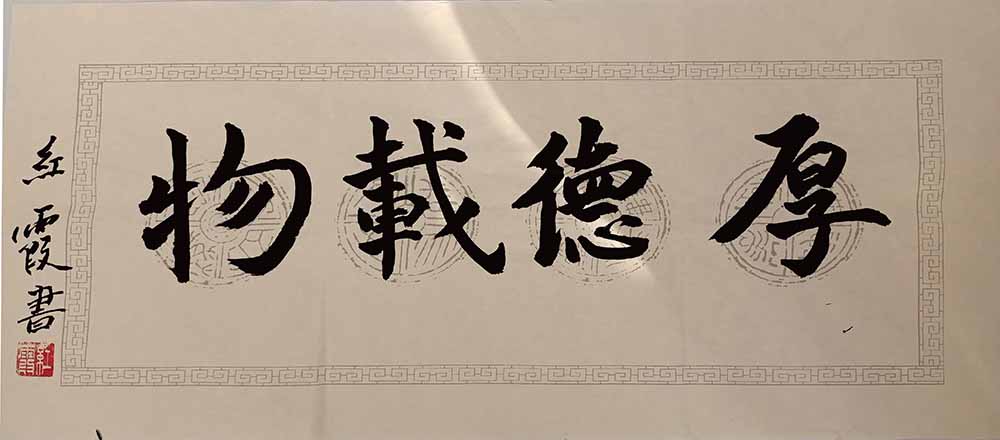 厚德載物
紅霞書